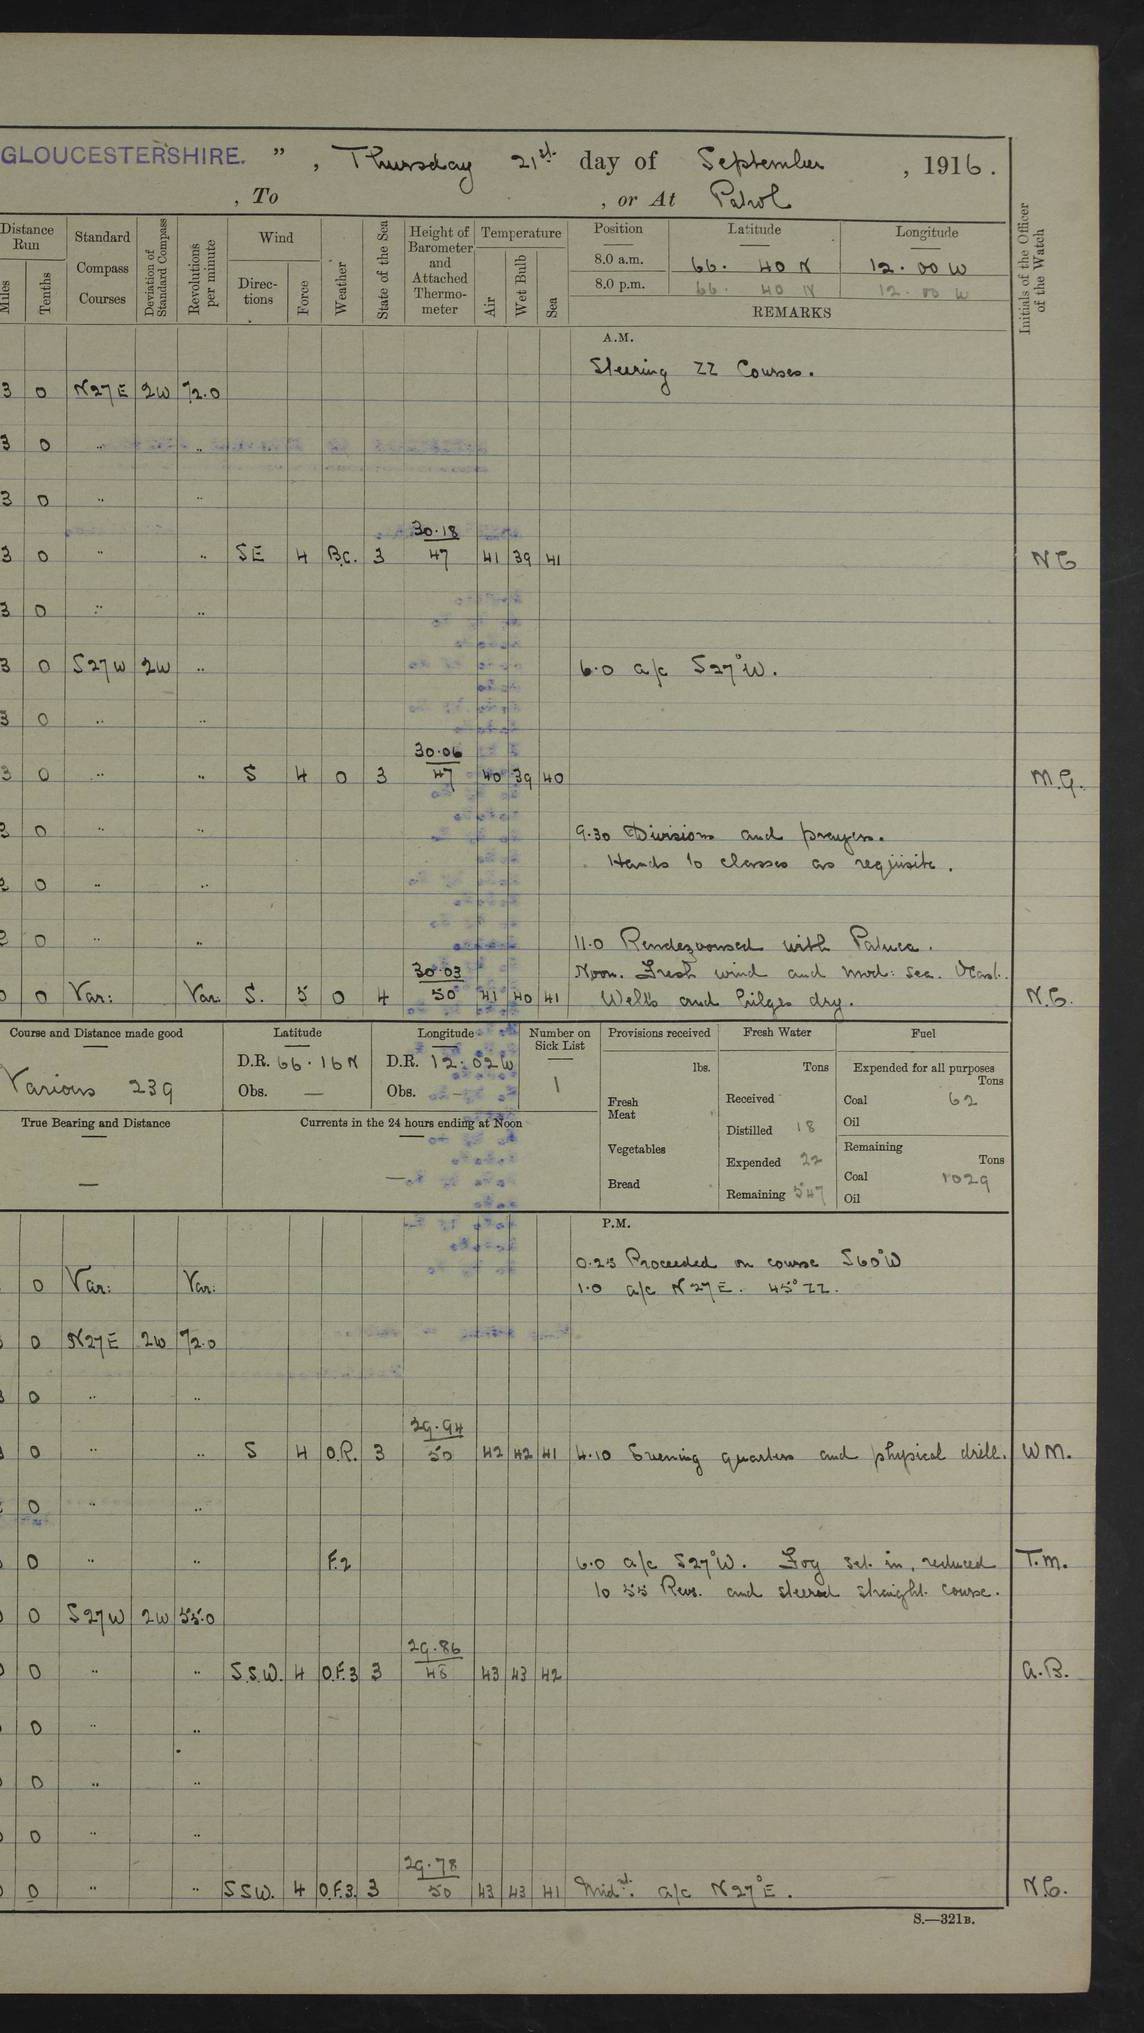 GLOUCESTERSHIRE. ” , Thursday 21st day of September , 1916.
, To , or At Patrol
Distance Run Standard Compass Courses Deviation of Standard Compass Revolutions per minute Wind Weather State of the Sea Height of Barometer and Attached Thermometer Temperature Position Latitude Longitude Initials of the Officer of the Watch
Miles Tenths Directions Force Air Wet Bulb Sea
8.0 a.m. 66. 40 N 12. 00 W
8.0 p.m. 66. 40 N 12. 00 W
REMARKS
A.M.
Steering ZZ Courses.
3 0 N27E 2W 72.0
3 0 " "
3 0 " "
30.18
3 0 " " SE 4 B.C. 3 47 41 39 41 N C
3 0 " "
3 0 S27W 2W " 6.0 a/c S27°W.
3 0 " "
30.06
3 0 " " S 4 0 3 47 40 39 40 M.G.
0 " " 9.30 Divisions and prayers.
Hands to classes as requisite.
2 0 " "
2 0 " " 11.0 Rendezvoused with Patuca.
30.03 Noon. Fresh wind and mod: sea. Ocast.
0 0 Var: Var: S. 5 0 4 50 41 40 41 Wells and bilges dry. N.C.
Course and Distance made good Latitude Longitude Number on Sick List Provisions received Fresh Water Fuel
Various 239 D.R. 66.16N D.R. 12.02W 1 lbs. Tons Expended for all purposes Tons
Obs. — Obs. — Fresh Meat Received Coal 62
True Bearing and Distance Currents in the 24 hours ending at Noon Distilled 18 Oil
Vegetables Expended 22 Remaining Tons
— — Bread Remaining 547 Coal 1029
Oil
P.M.
0.25 Proceeded on course S60°W
0 Var: Var: 1.0 a/c N27E. 45° ZZ.
0 N27E 2W 72.0
0 " "
29.94
0 " " S 4 O.R. 3 50 42 42 41 4.10 Evening quarters and physical drill. W M.
0 " "
0 " " F.2 6.0 a/c S27°W. Fog set in, reduced T.M.
to 55 Revs. and steered straight course.
0 S27W 2W 55.0
29.86
0 " " S.S.W. 4 O.F.3 3 48 43 43 42 A.B.
0 " "
0 " "
0 " "
29.78
0 " " SSW. 4 O.F.3. 3 50 43 43 41 Midnt. a/c N27°E. N.C.
S.—321B.